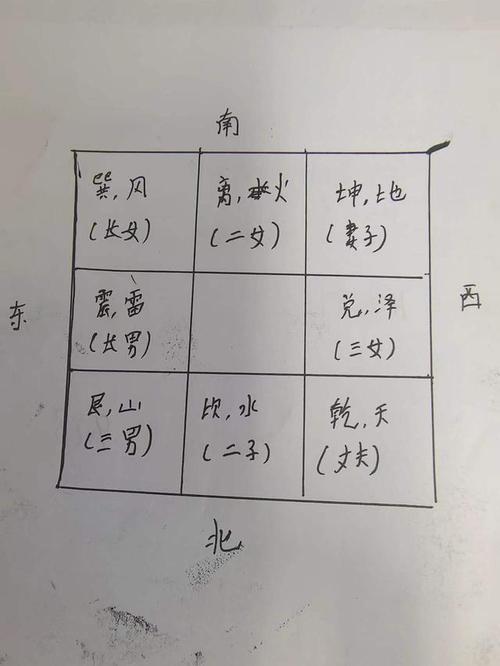 南
巽,风
(长女)
离,火
(二女)
坤,地
(妻子)
东
震,雷
(长男)
兑,泽
(三女)
西
艮,山
(三男)
坎,水
(二子)
乾,天
(丈夫)
北